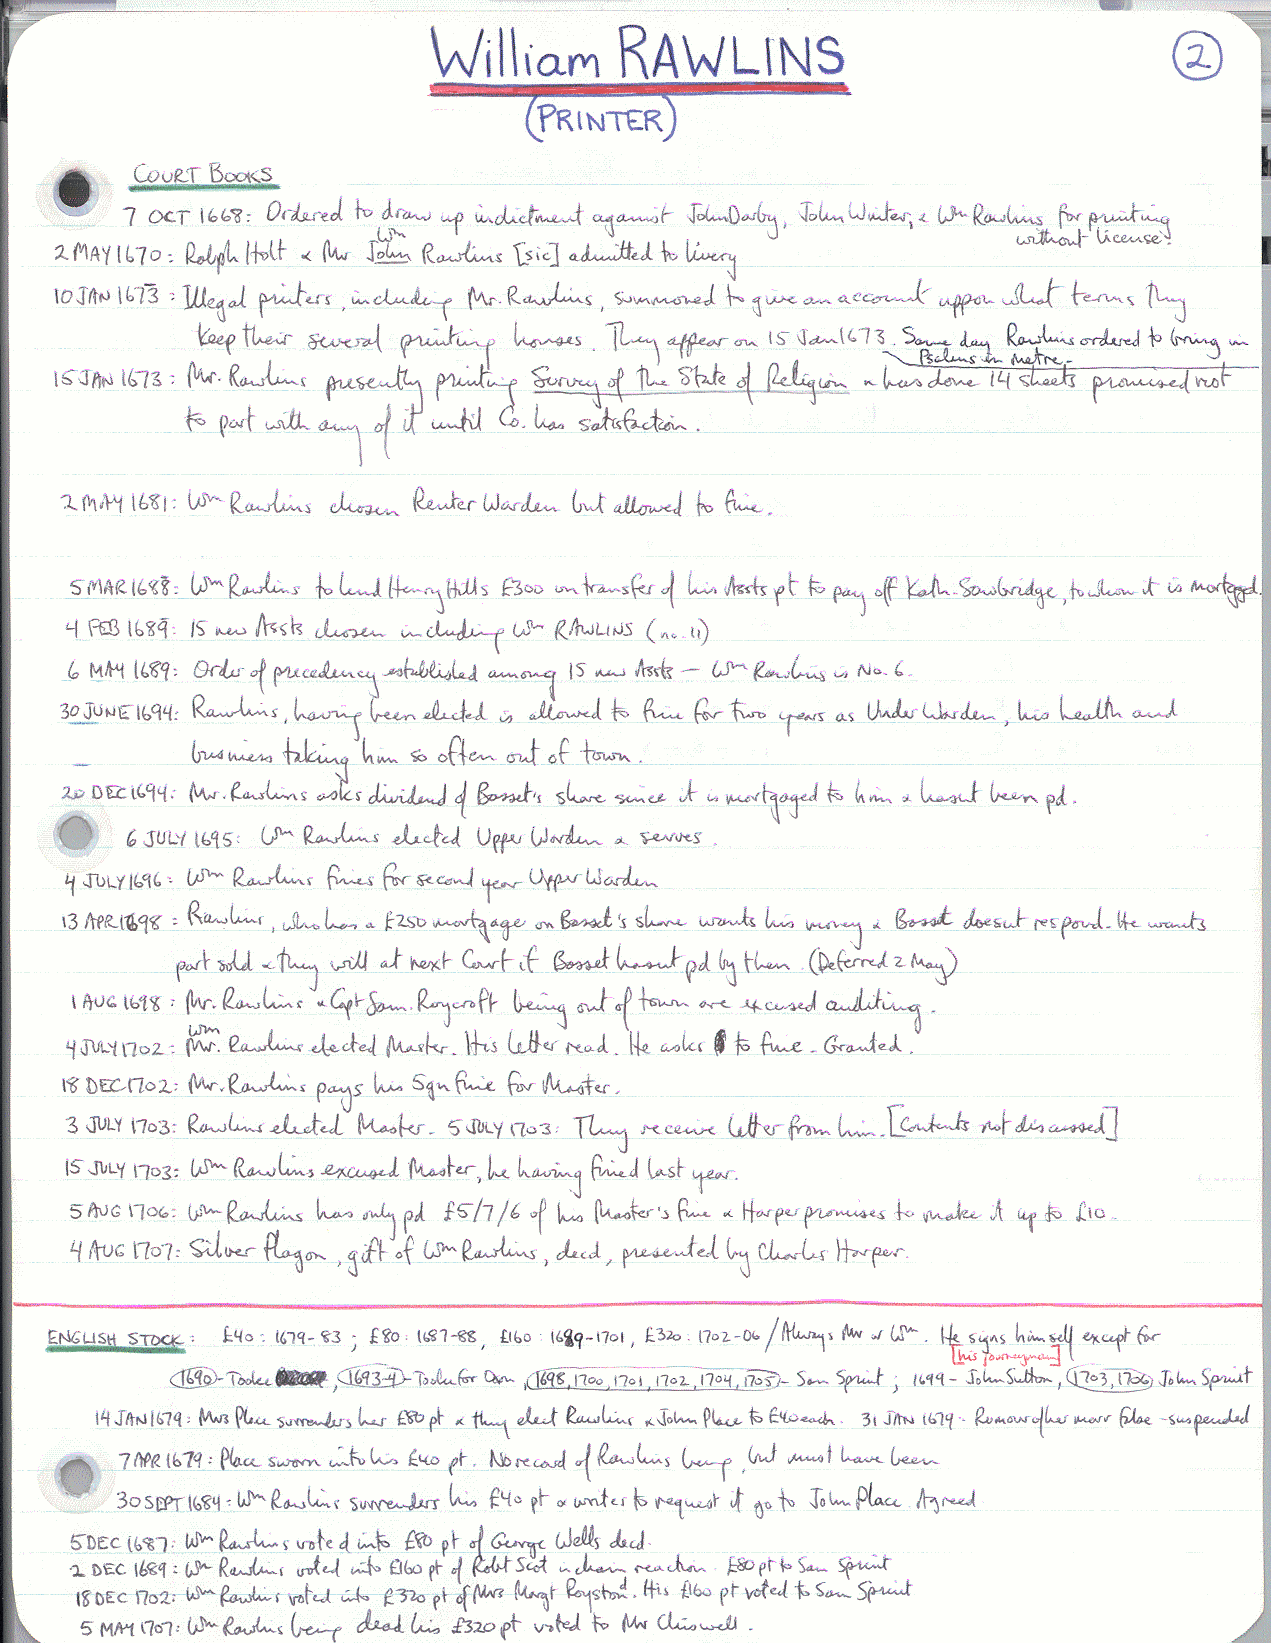 William RAWLINS
2
(PRINTER)
COURT BOOKS
7 OCT 1668: Ordered to draw up indictment against John Darby, John Winter, & Wm Rawlins for printing
without license.
Wm
2 MAY 1670: Ralph Holt & Mr John Rawlins [sic] admitted to livery
10 JAN 1673: Illegal printers, including Mr. Rawlins, summoned to give an account uppon what terms they
keep their several printing houses. They appear on 15 Jan 1673. Same day Rawlins ordered to bring in
Psalms in metre.
15 JAN 1673: Mr. Rawlins presently printing Survey of the State of Religion & has done 14 sheets promised not
to part with any of it until Co. has satisfaction.
2 MAY 1681: Wm Rawlins chosen Renter Warden but allowed to fine.
5 MAR 1688: Wm Rawlins to lend Henry Hills £300 on transfer of his Assts pt to pay off Kath. Sawbridge, to whom it is mortgagd.
4 FEB 1689: 15 new Assts chosen including Wm RAWLINS (no. 11)
6 MAY 1689: Order of precedency established among 15 new Assts - Wm Rawlins is No. 6.
30 JUNE 1694: Rawlins, having been elected is allowed to fine for two years as Under Warden, his health and
business taking him so often out of town.
20 DEC 1694: Mr. Rawlins asks dividend of Basset's share since it is mortgaged to him & hasnt been pd.
6 JULY 1695: Wm Rawlins elected Upper Warden & serves.
4 JULY 1696: Wm Rawlins fines for second year Upper Warden
13 APR 1698: Rawlins, who has a £250 mortgage on Basset's share wants his money & Basset doesnt respond. He wants
part sold & they will at next Court if Basset hasnt pd by then. (Deferred 2 May)
1 AUG 1698: Mr. Rawlins & Capt Sam. Roycroft being out of town are excused auditing.
Wm
4 JULY 1702: Mr. Rawlins elected Master. His letter read. He asks to fine. Granted.
18 DEC 1702: Mr. Rawlins pays his 5gn fine for Master.
3 JULY 1703: Rawlins elected Master. 5 JULY 1703: They receive letter from him. [Contents not discussed]
15 JULY 1703: Wm Rawlins excused Master, he having fined last year.
5 AUG 1706: Wm Rawlins has only pd £5/7/6 of his Master's fine & Harper promises to make it up to £10.
4 AUG 1707: Silver flagon, gift of Wm Rawlins, decd, presented by Charles Harper.
ENGLISH STOCK: £40: 1679-83; £80: 1687-88, £160: 1689-1701, £320: 1702-06 / Always Mr or Wm. He signs himself except for
[his journeyman]
1690 - Tooke, 1693-4 - Tooke for Dam, 1698, 1700, 1701, 1702, 1704, 1705 - Sam Sprint; 1699 - John Sutton, 1703, 1706 John Sprint
14 JAN 1679: Mrs Place surrenders her £80 pt & they elect Rawlins & John Place to £40 each. 31 JAN 1679 - Rumour of her marr false - suspended
7 APR 1679: Place sworn into his £40 pt. No record of Rawlins being, but must have been
30 SEPT 1684: Wm Rawlins surrenders his £40 pt & writes to request it go to John Place. Agreed
5 DEC 1687: Wm Rawlins voted into £80 pt of George Wells decd.
2 DEC 1689: Wm Rawlins voted into £160 pt of Robt Scot in chain reaction. £80 pt to Sam Sprint
18 DEC 1702: Wm Rawlins voted into £320 pt of Mrs Margt Royston. His £160 pt voted to Sam Sprint
5 MAY 1707: Wm Rawlins being dead his £320 pt voted to Mr Chiswell.